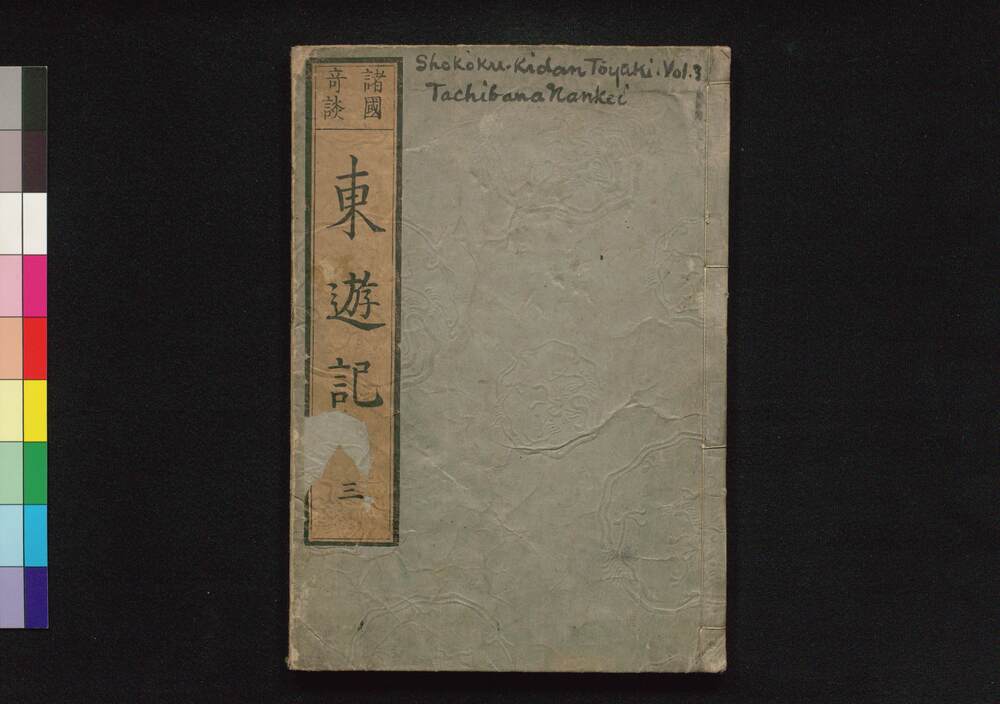 Shokoku-Kidan Toyuki. Vol.3
Tachibana Nankei
諸國
奇談
東遊記
三